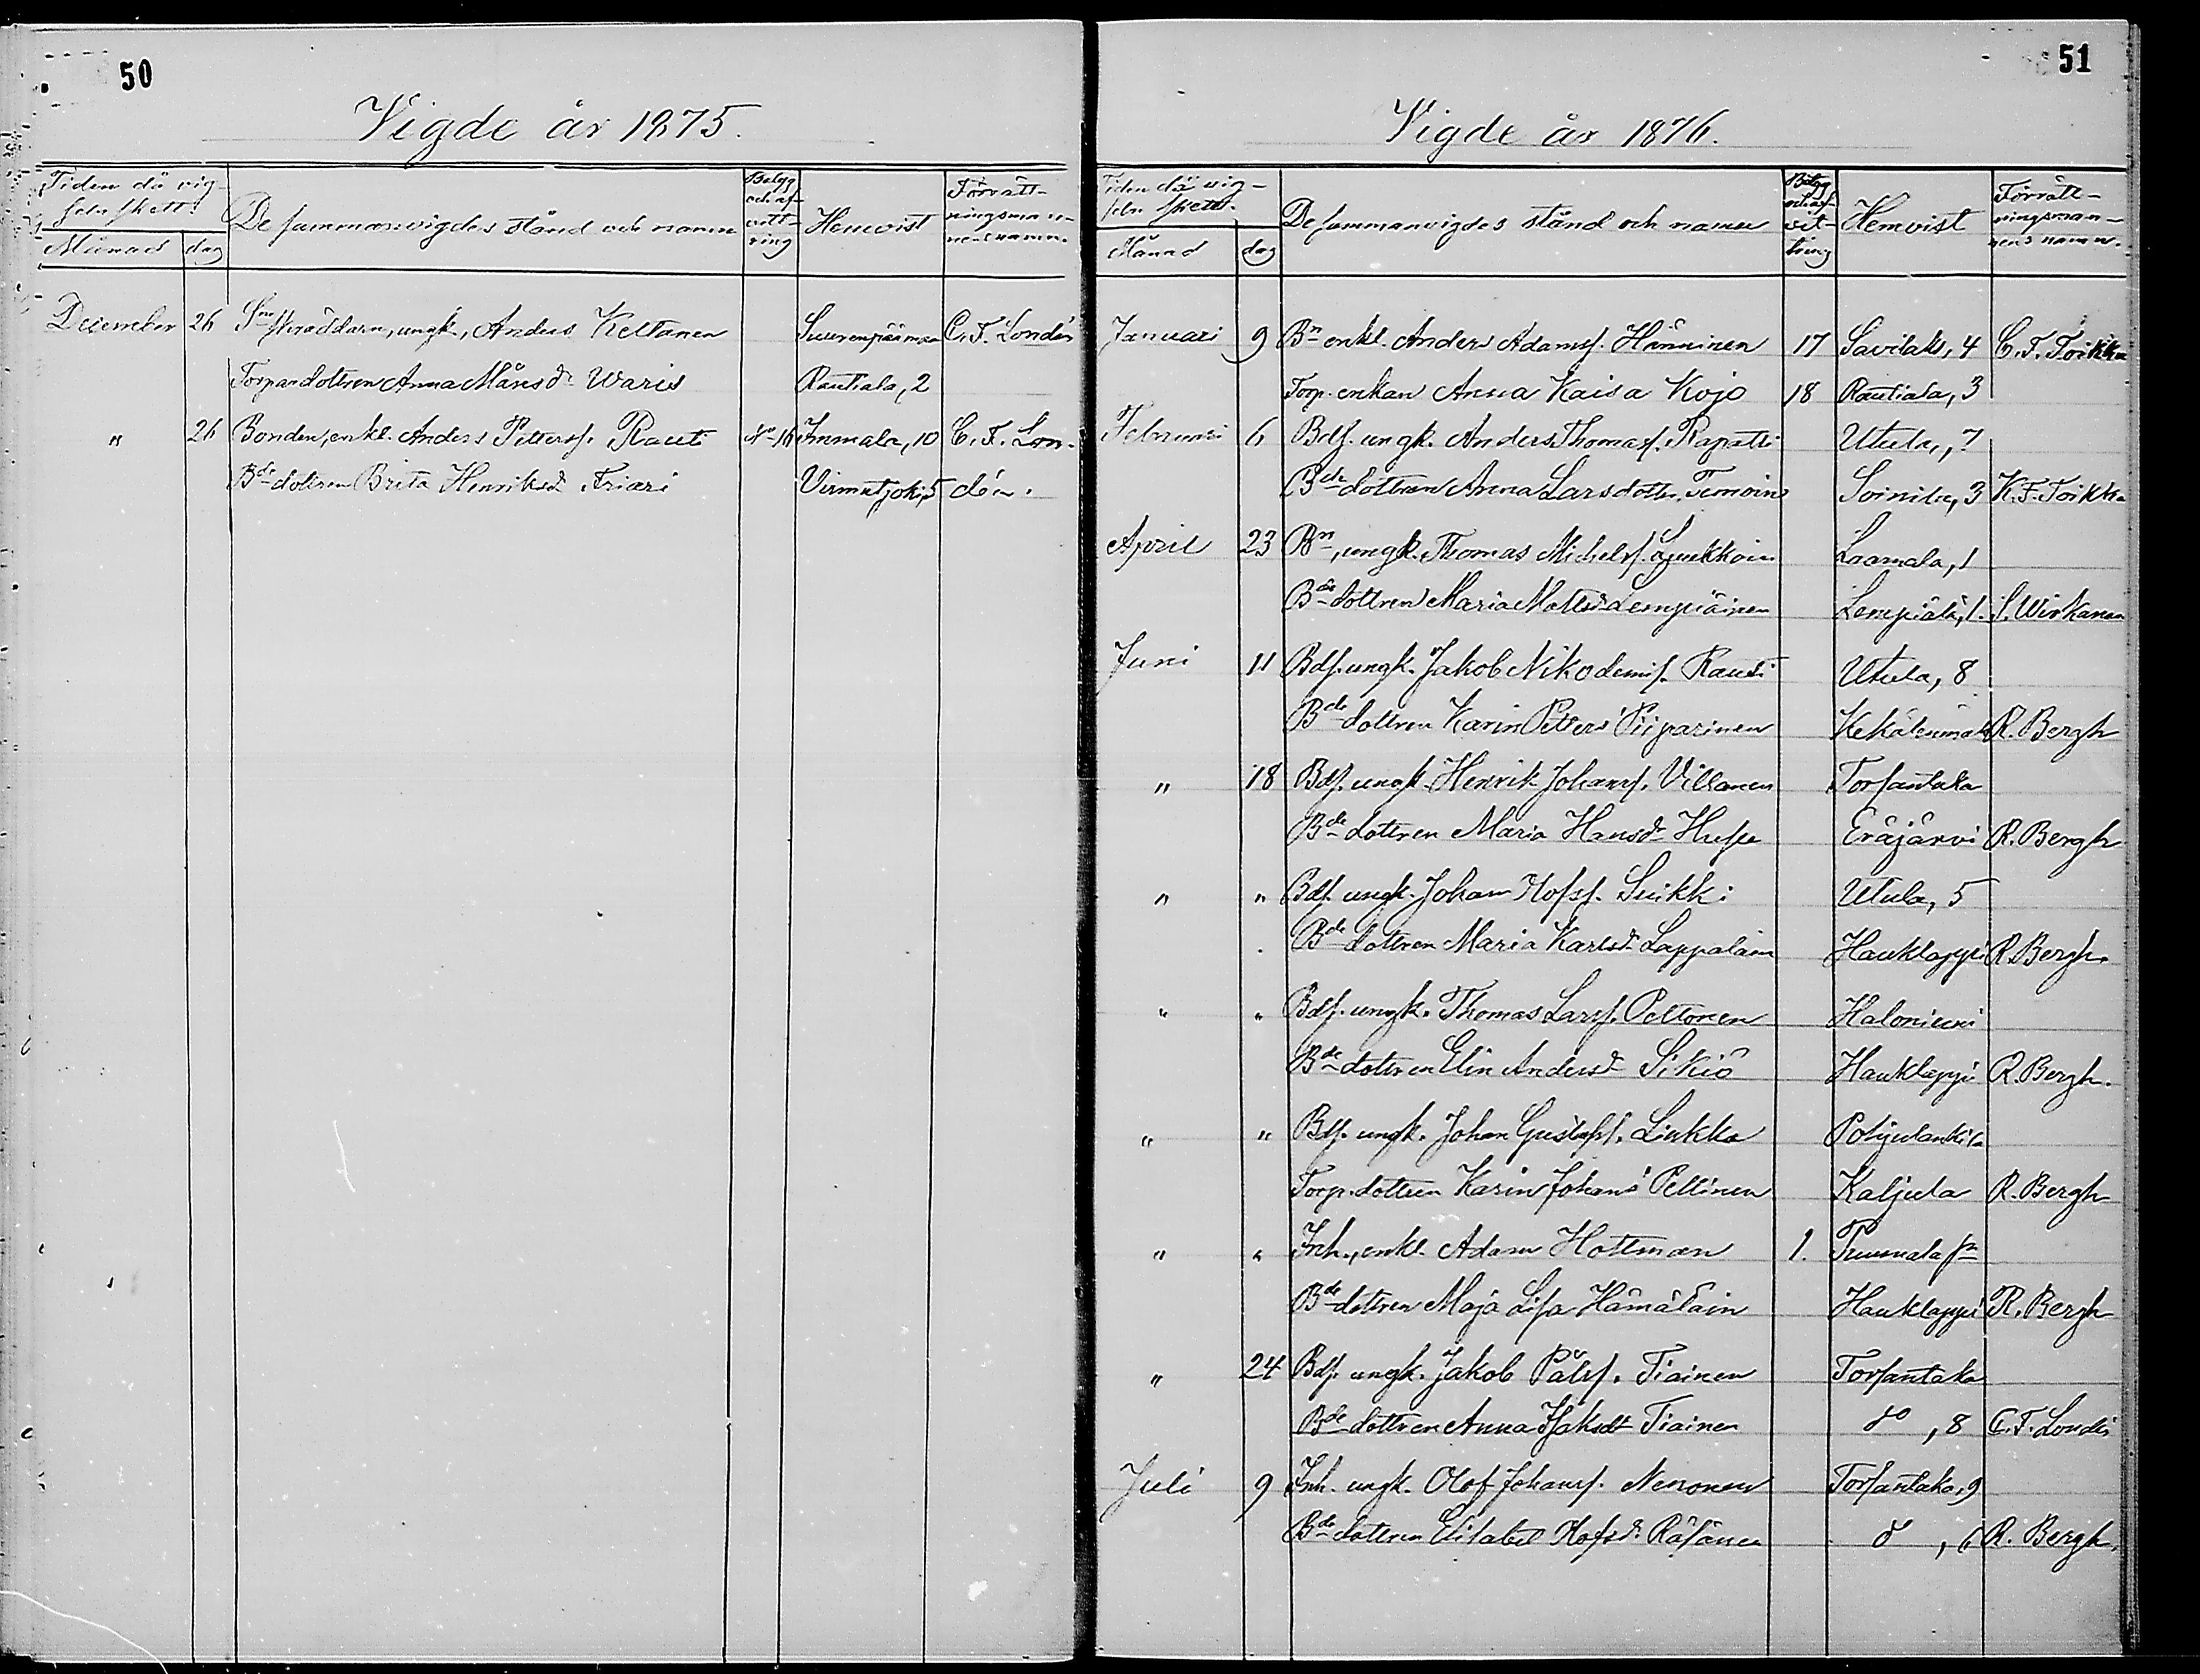 50
Vigde år 1875.
Tiden då vig-
seln skett.
Månad dag
De sammanvigdes stånd och namn
Hemvist
Förrätt-
ningsman-
nens namn.
December 26 Anders Keltanen Suurenpään C. F. Londén
Torpardottren Anna Månsdr Waris Rautiala, 2
" 26 Bonden, enkl. Anders Pettersf. Rauti No 16 Immala, 10 C. F. Lon-
Bdedottren Brita Henriksdr Friari Virmutjoki, 5 dén.
51
Vigde år 1876.
Tiden då vig-
seln skett.
Månad dag
De sammanvigdes stånd och namn
Hemvist
Förrätt-
ningsman-
nens namn.
Januari 9 Bn enkl. Anders Adamsf. Hänninen 17 Savilaks, 4 C. F. Toikka
Torp. enkan Anna Kaisa Kojo 18 Rautiala, 3
Februari 6 Bdf. ungk. Anders Thomasf. Rapatti Utula, 7
Bdedottren Anna Larsdotter Temoin Soinila, 3 K. F. Toikka
April 23 Bn, ungk. Thomas Michelsf. Laamala, 1
Bdedottren Maria Mattsdr Lempiäinen Lempiälä, 1. S. Wirkanen
Juni 11 Bdf. ungk. Jakob Nikodemif. Rauti Utula, 8
Bdedottren Karin Petters Piiparinen R. Bergh
" 18 Bdf. ungk. Henrik Johansf. Villanen Torsantaka
Bdedottren Maria Hansdr Eräjärvi R. Bergh
" " Bdf. ungk. Johan Olofsf. Suikki Utula, 5
Bdedottren Maria Karlsdr Lappalain Hauklappi R. Bergh.
" " Bdf. ungk. Thomas Larsf. Peltonen Haloniemi
Bdedottren Elin Andersdr Sikiö Hauklappi R. Bergh.
" " Bdf. ungk. Johan Gustafsf. Liukka Pohjalankila
Torp. dottren Karin Johans Pellinen Kaljula R. Bergh
" " Inh., enkl. Adam Hottman 1. Puumala sn
Bdedottren Maja Lisa Hämäläin Hauklappi R. Bergh
" 24 Bdf. ungk. Jakob Pålsf. Tiainen Torsantaka
Bdedottren Anna Tiainen do, 8 C. F. Londén
Juli 9 Inh. ungk. Olof Johansf. Neronen Torsantaka, 9
Bdedottren Elisabet Olofsdr Räsänen do, 6 R. Bergh.